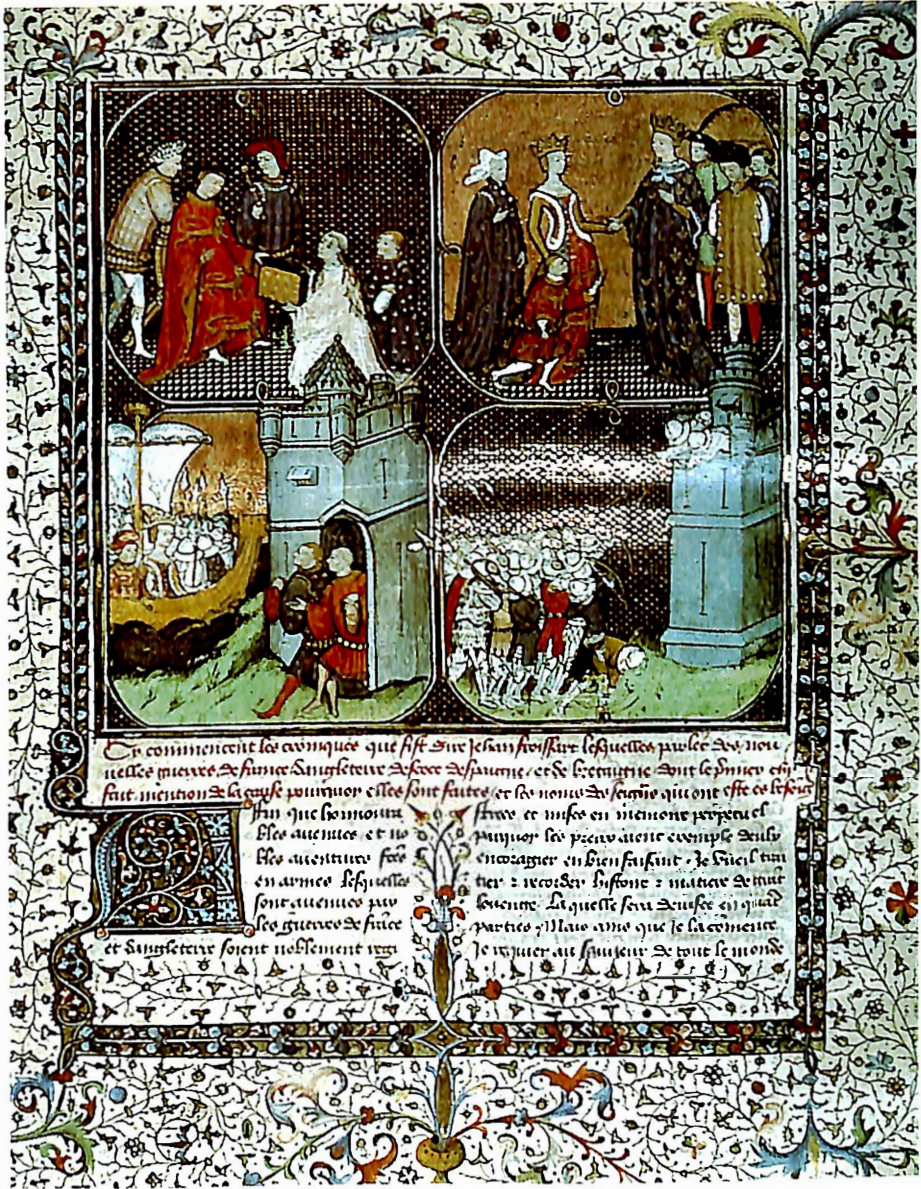 Cy commencent les croniques que fist sire Jehan froissart lesquelles parlēt des nou
uelles guerres de france dangleterre descoce despaigne et de bretaigne dont le p̄mier
fait mention de la cause pourquoy elles sont faites et les noms des seign̄s qui ont este
Affin que honnoura
bles auenues et no
bles auentures
en armes lesquelles
sont auenues par
les guerres de frāce
et dangleterre soient noblement regi
strees et mises en memoire perpetuel
parquoy les preux aient exemple deulx
encoragier en bien faisant Je vueil trai
tier et recorder histoire et matiere de
louenge La quelle sera deuisee en quatre
parties Mais ains que je la comence
Je requier au sauueur de tout le monde